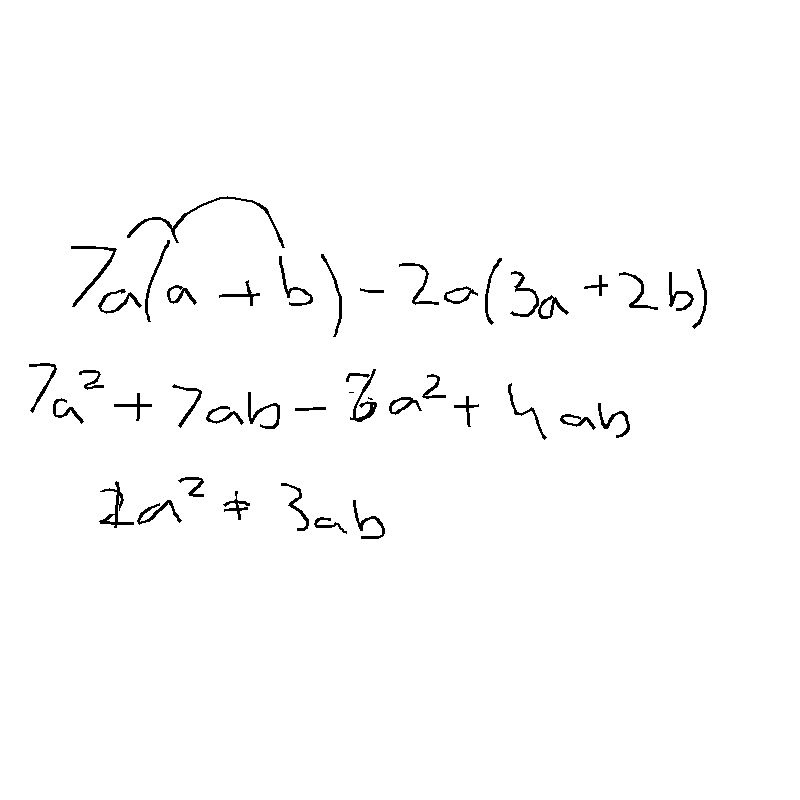 7a(a + b) - 2a(3a + 2b)
7a² + 7ab - 6a² + 4ab
1a² + 3ab